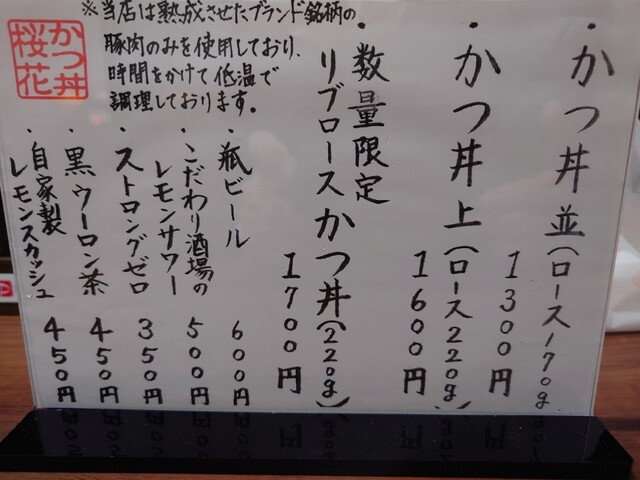 ・かつ丼並(ロース170g)
1300円
・かつ丼上(ロース220g)
1600円
・数量限定
リブロースかつ丼(220g)
1700円
※当店は熟成させたブランド銘柄の
豚肉のみを使用しており、
時間をかけて低温で
調理しております。
かつ丼
桜花
・瓶ビール 600円
・こだわり酒場の
レモンサワー 500円
・ストロングゼロ 350円
・黒ウーロン茶 450円
・自家製
レモンスカッシュ 450円